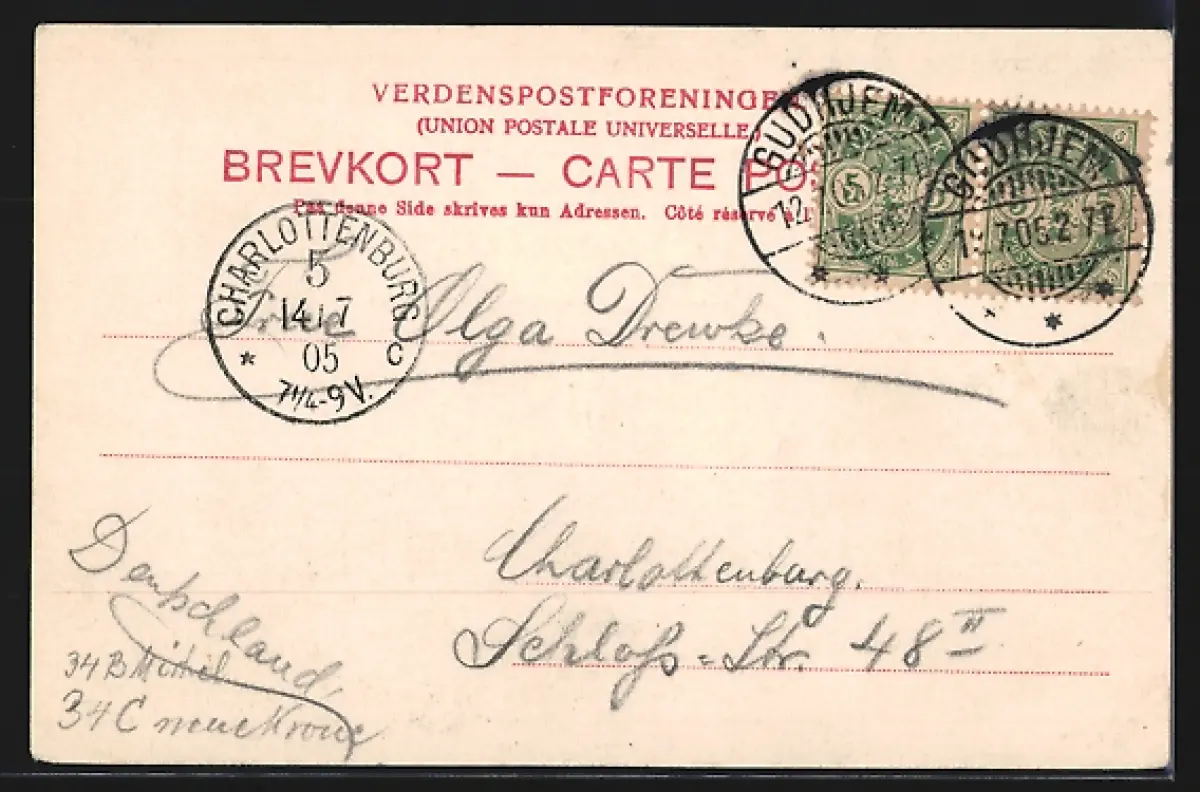 VERDENSPOSTFORENINGEN
(UNION POSTALE UNIVERSELLE)
BREVKORT — CARTE POS
Paa denne Side skrives kun Adressen. Côté réservé à l'
GUDHJEM
12.7.05.2-7E
GUDHJEM
CHARLOTTENBURG
5
14.7
05
7¼-9V.
* C
Frau Olga Drewke.
Charlottenburg.
Schloß-Str. 48 II
Deutschland,
34 B Mittel
34 C neue Krone